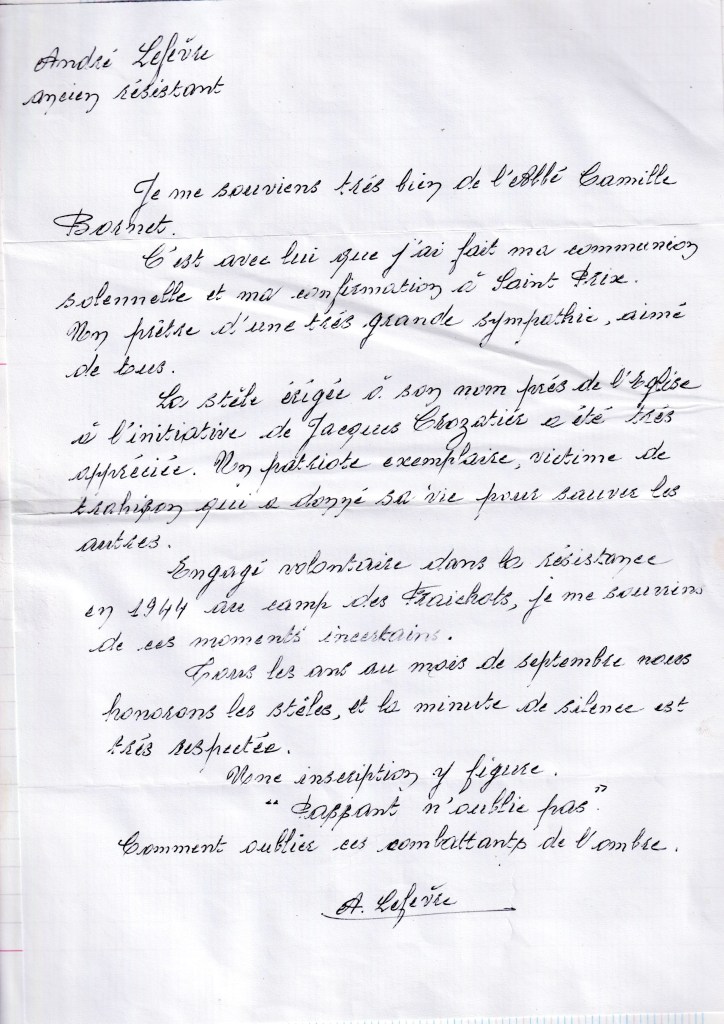 André Lefèvre
ancien résistant
Je me souviens trés bien de l'Abbé Camille
Bornet.
C'est avec lui que j'ai fait ma communion
solennelle et ma confirmation à Saint Prix.
Un prêtre d'une trés grande sympathie, aimé
de tous.
La stèle érigée à son nom prés de l'Eglise
à l'initiative de Jacques Crozatier a été trés
appréciée. Un patriote exemplaire, victime de
trahison qui a donné sa vie pour sauver les
autres.
Engagé volontaire dans la résistance
en 1944 au camp des Fraichots, je me souviens
de ces moments incertains.
Tous les ans au mois de septembre nous
honorons les stèles, et la minute de silence est
trés respectée.
Une inscription y figure.
"Passant n'oublie pas"
Comment oublier ces combattants de l'ombre.
A. Lefèvre